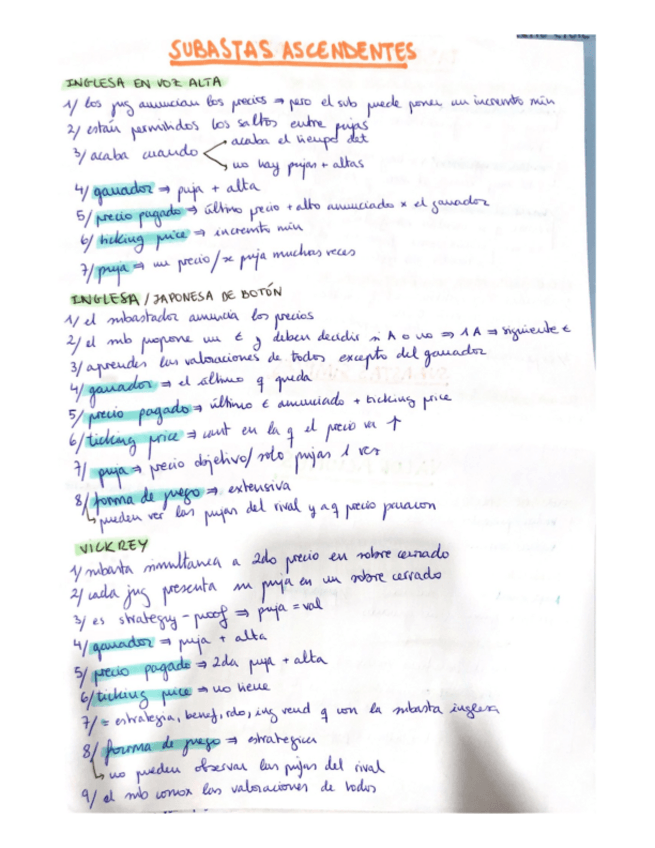 SUBASTAS ASCENDENTES
INGLESA EN VOZ ALTA
1/ los jug anuncian los precios ⇒ pero el sub puede poner un incremto min
2/ están permitidos los saltos entre pujas
3/ acaba cuando
acaba el tiempo det
no hay pujas + altas
4/ ganador ⇒ puja + alta
5/ precio pagado ⇒ último precio + alto anunciado x el ganador
6/ ticking price ⇒ incremto min
7/ puja ⇒ un precio / se puja muchas veces
INGLESA / JAPONESA DE BOTÓN
1/ el subastador anuncia los precios
2/ el sub propone un € y deben decidir si A o no ⇒ 1 A ⇒ siguiente €
3/ aprendes las valoraciones de todos excepto del ganador
4/ ganador ⇒ el último q queda
5/ precio pagado ⇒ último € anunciado + ticking price
6/ ticking price ⇒ cant en la q el precio va ↑
7/ puja ⇒ precio objetivo / solo pujas 1 vez
8/ forma de juego ⇒ extensiva
↳ pueden ver las pujas del rival y a q precio pararon
VICKREY
1/ subasta simultanea a 2do precio en sobre cerrado
2/ cada jug presenta su puja en un sobre cerrado
3/ es strategy-proof ⇒ puja = val
4/ ganador ⇒ puja + alta
5/ precio pagado ⇒ 2da puja + alta
6/ ticking price ⇒ no tiene
7/ = estrategia, benef, rdo, ing vend q con la subasta inglesa
8/ forma de juego ⇒ estrategica
↳ no pueden observar las pujas del rival
9/ el sub conox las valoraciones de todos